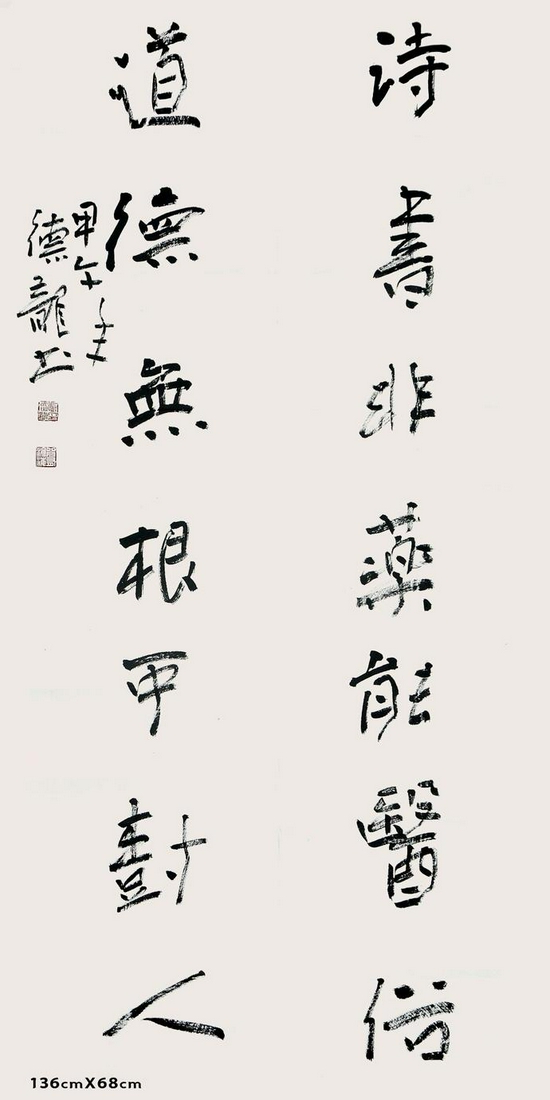 诗書非藥能醫俗
道德無根可樹人
甲午年
德龍书
136cmX68cm